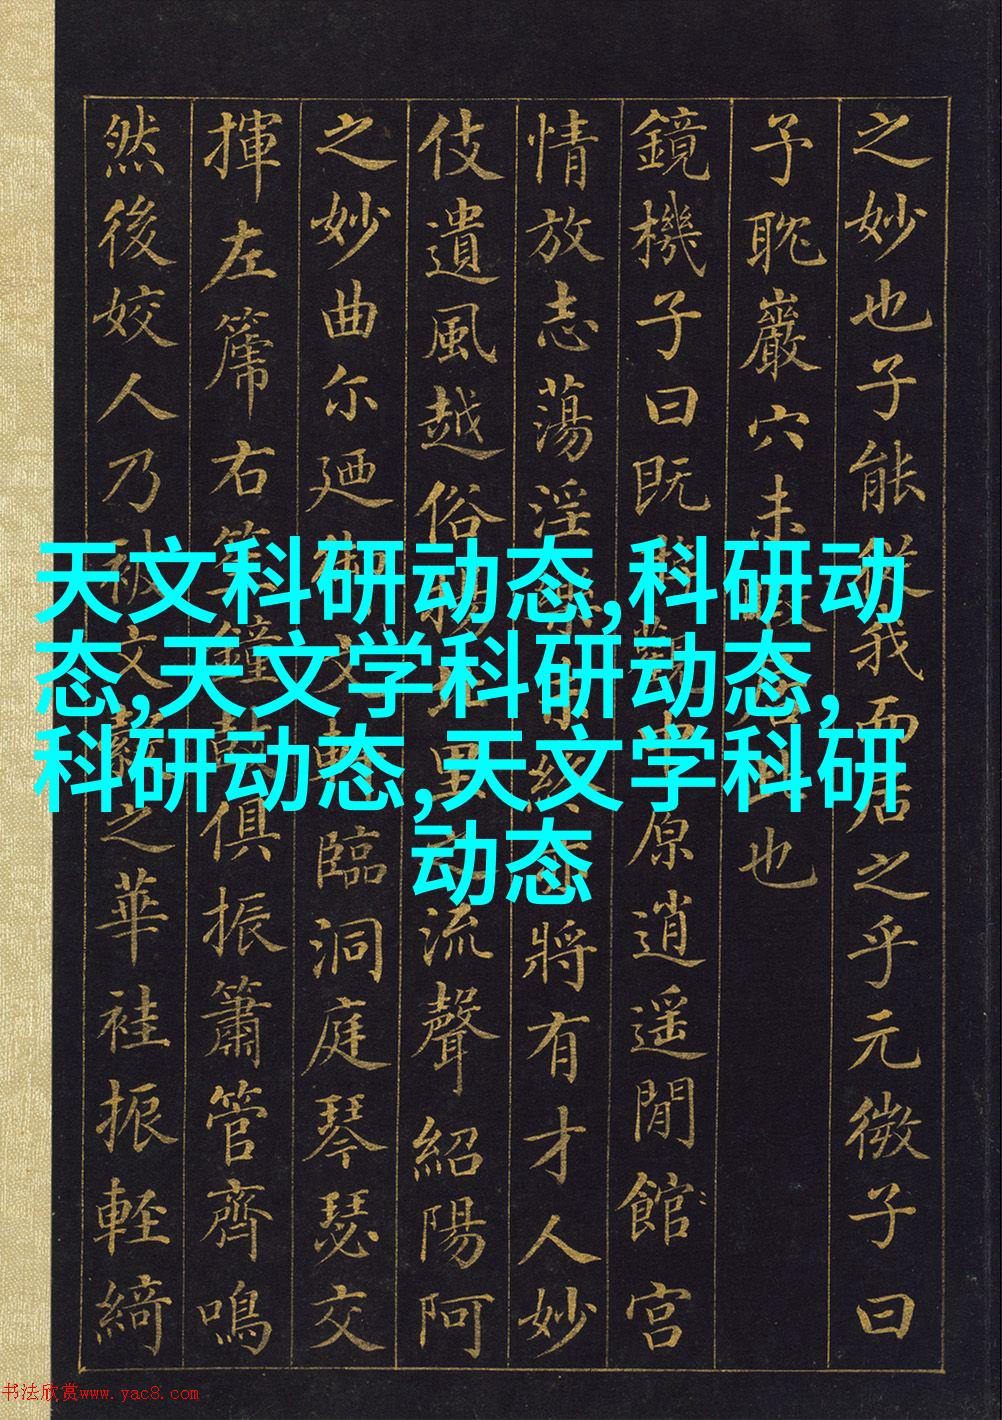 之妙也子能從我而居之乎元微子曰
予耽巖穴未暇居也
鏡機子曰既觀中原逍遥閒館宮
情放志蕩淫終亦將有才人妙
伎遺風越俗揚里流聲紹陽阿
之妙曲尔廼臨洞庭琴瑟交
揮左篪右笙鐘鼓俱振簫管齊鳴
然後姣人乃被文縠之華袿振輕綺
天文科研动态,科研动
态,天文学科研动态,
科研动态,天文学科研
动态
书法欣赏www.yac8.com